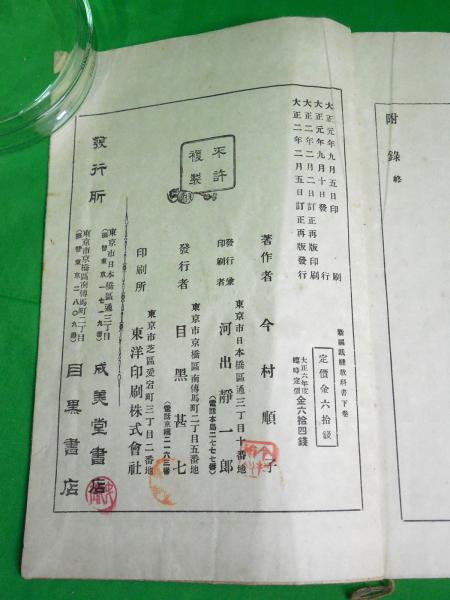 附錄 終
大正元年九月五日印刷
大正元年九月十日發行
大正二年二月二日訂正再版印刷
大正二年二月五日訂正再版發行
新編裁縫教科書下卷
定價金六拾錢
大正六年度
臨時定價 金六拾四錢
不許
複製
著作者 今村順子
東京市日本橋區通三丁目十番地
發行兼
印刷者 河出靜一郎
(電話本局二七七番)
東京市京橋區南傳馬町二丁目五番地
發行者 目黑甚七
(電話京橋二一六三番)
東京市芝區愛宕町三丁目二番地
印刷所 東洋印刷株式會社
發行所
東京市日本橋區通三丁目
(振替東京一七一九番) 成美堂書店
東京市京橋區南傳馬町二丁目
(振替東京二八〇九番) 目黑書店